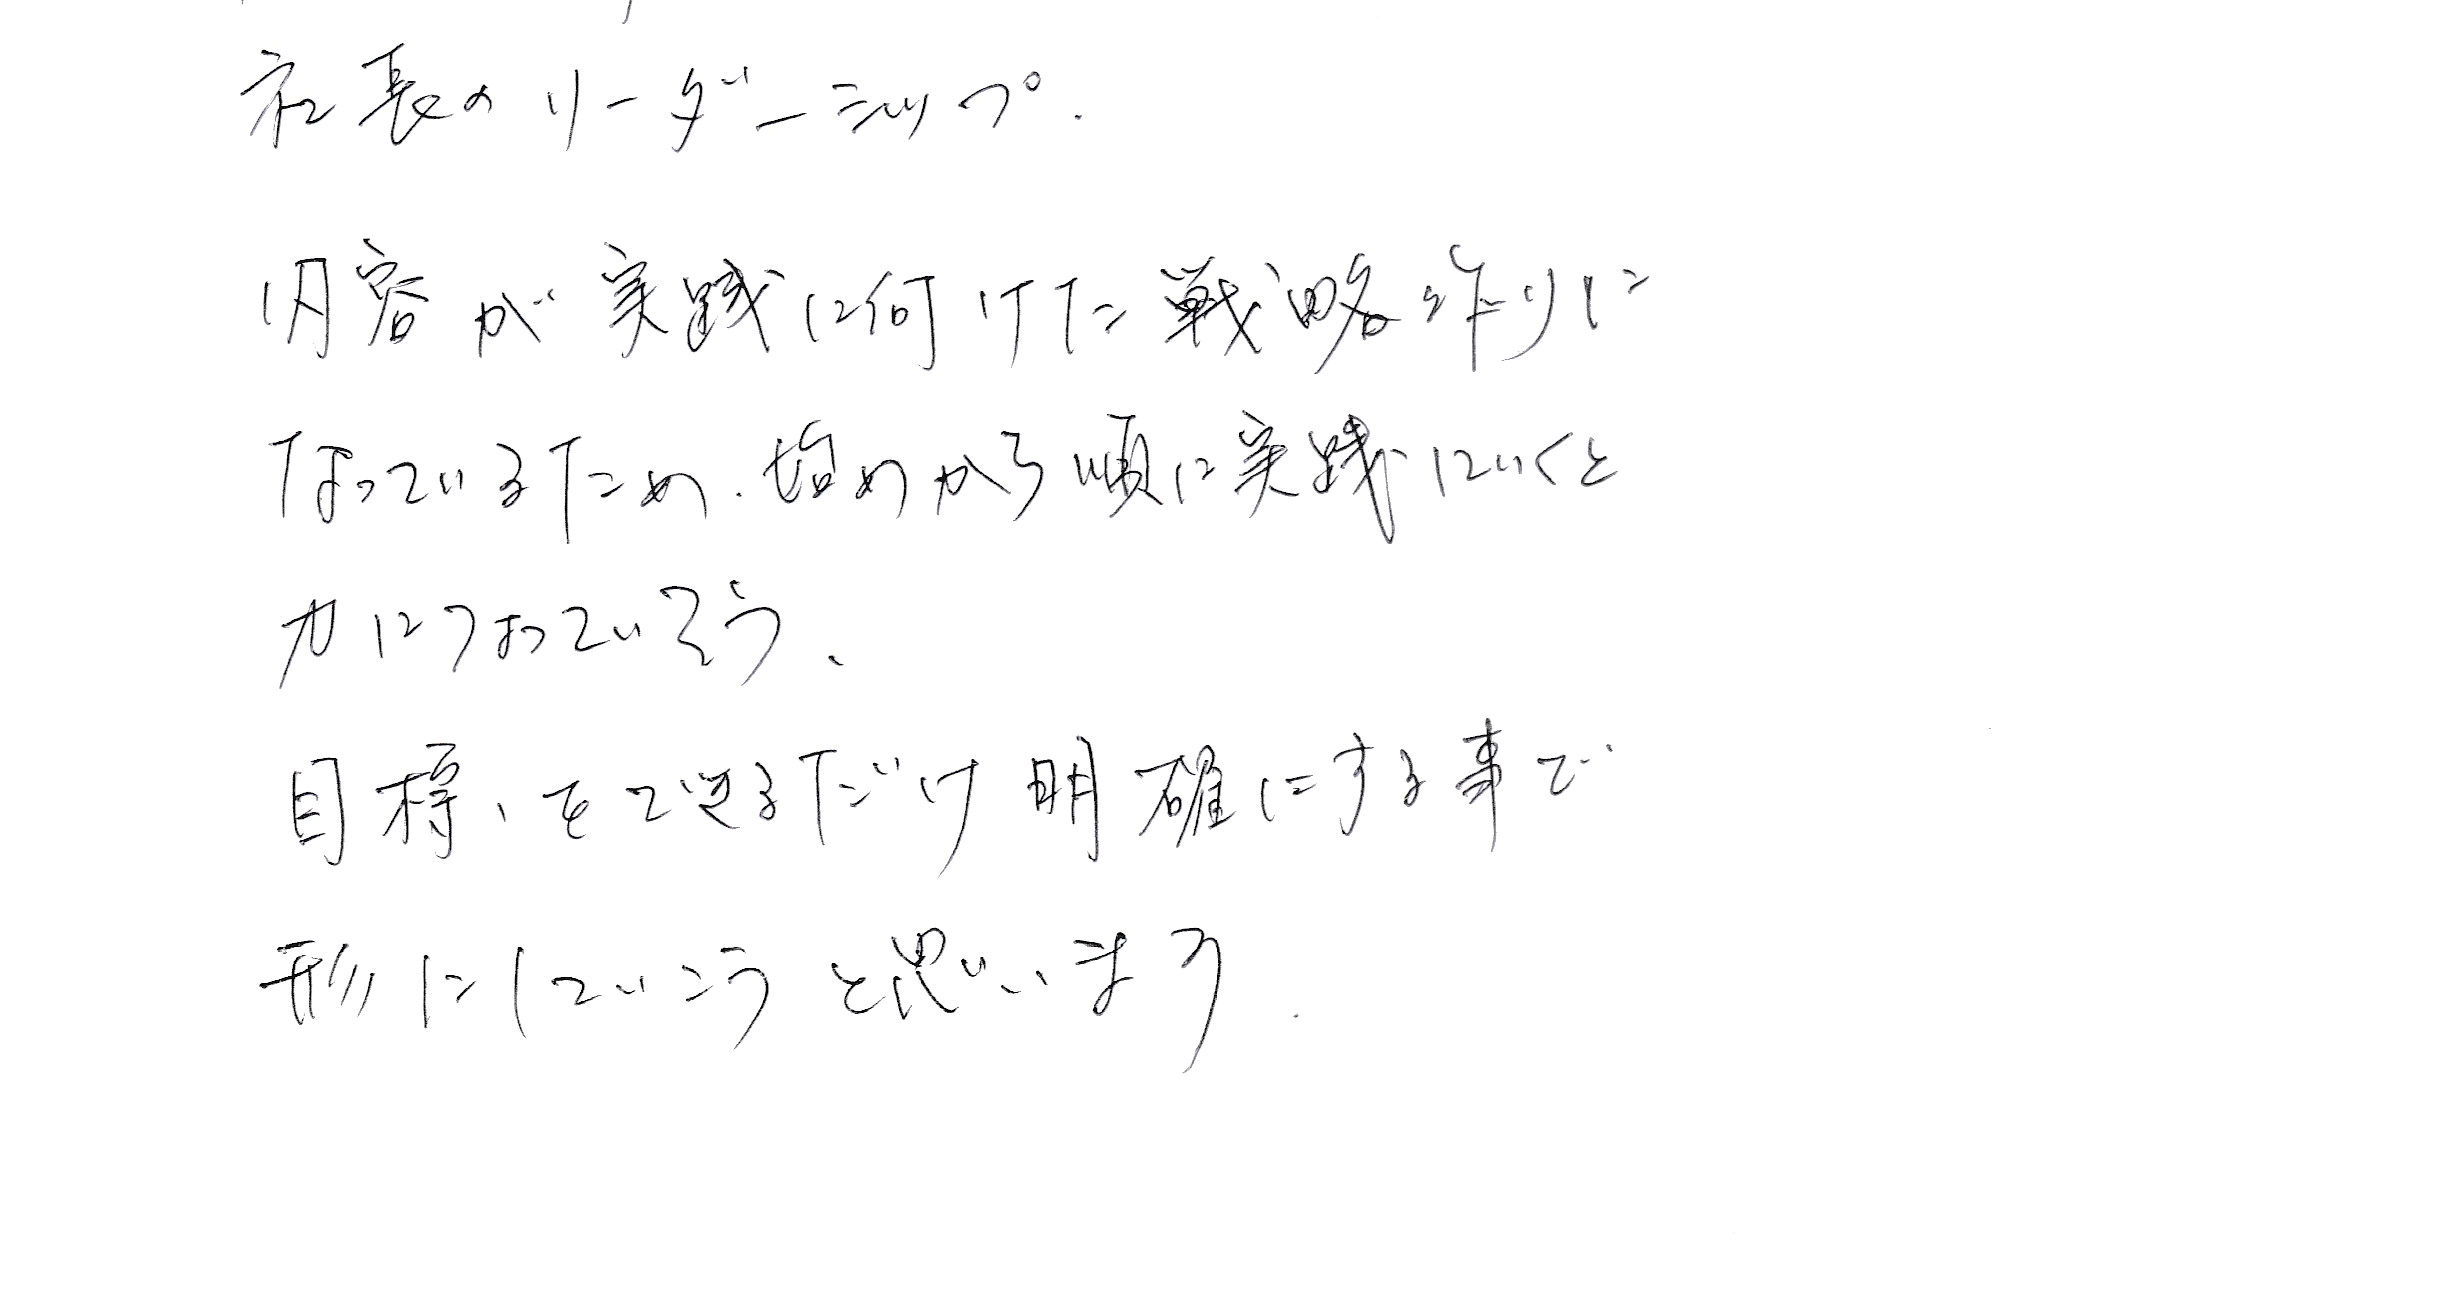 社長のリーダーシップ.
内容が実践に向けた戦略作りに
なっているため、始めから順に実践していくと
力になっていそう、
目標、をで送るだけ明確にする事で
形にしていこうと思います.